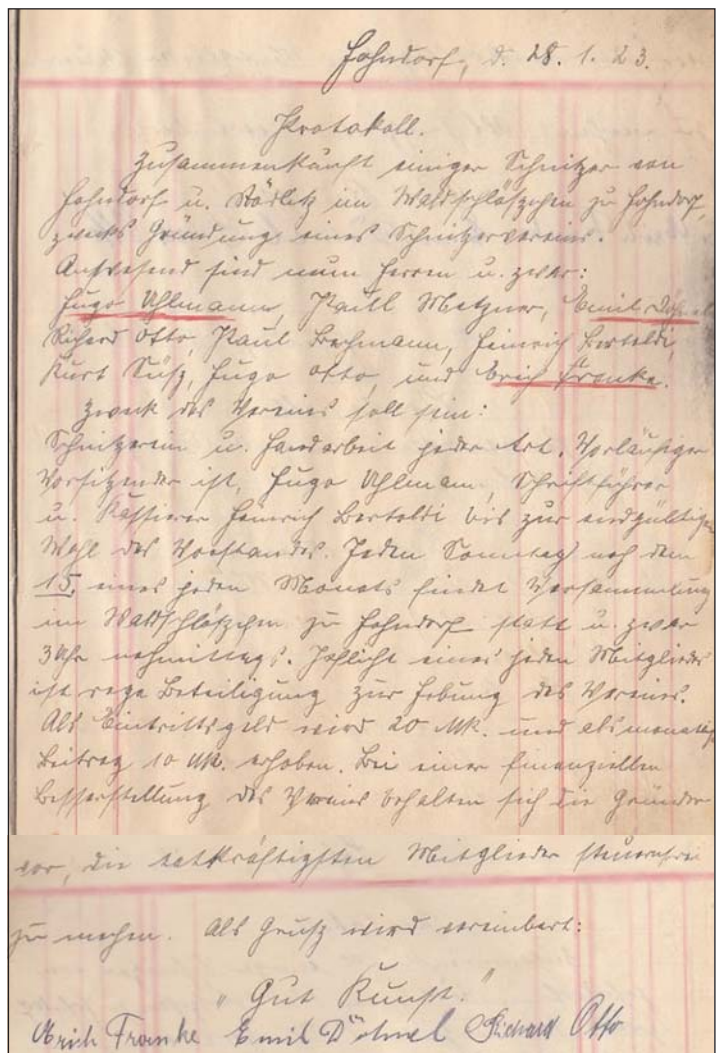 Hohndorf, d. 28. 1. 23.
Protokoll.
Zusammenkunft einiger Schnitzer von
Hohndorf u. Rödlitz im Waldschlößchen zu Hohndorf,
zwecks Gründung eines Schnitzervereins.
Anwesend sind neun Herren u. zwar:
Hugo Uhlmann, Paul Metzner, Emil Döhnel
Richard Otto, Paul Bachmann, Heinrich Bertoldi,
Kurt Süß, Hugo Otto, und Erich Franke.
Zweck des Vereins soll sein:
Schnitzerein u. Handarbeit jeder Art. Vorläufiger
Vorsitzender ist, Hugo Uhlmann, Schriftführer
u. Kassierer Heinrich Bertoldi bis zur endgültigen
Wahl des Vorstandes. Jeden Sonntag nach dem
15. eines jeden Monats findet Versammlung
im Waldschlößchen zu Hohndorf statt u. zwar
3 Uhr nachmittags. Pflicht eines jeden Mitgliedes
ist rege Beteiligung zur Hebung des Vereins.
Als Eintrittsgeld wird 20 Mk. und als monatl.
Beitrag 10 Mk. erhoben. Bei einer finanziellen
Besserstellung des Vereins behalten sich die Gründer
vor, die tatkräftigsten Mitglieder steuernfrei
zu machen. Als Gruß wird vereinbart:
"Gut Kunst."
Erich Franke Emil Döhnel Richard Otto